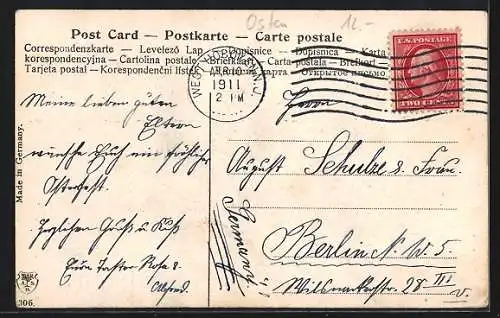 Osten 12.-
Post Card – Postkarte – Carte postale
Correspondenzkarte – Levelező Lap Dopisnice – Dopisnica – Karta
korespondencyjna – Cartolina postale – Briefkaart – Carta postala – Brefkort
Tarjeta postal – Korespondenční lístek карта – Открытое письмо
WEST HOBOKEN
APR
1911
12 M
U.S. POSTAGE
TWO CENTS
Herrn
Meine lieben guten
Eltern
wünsche Euch ein fröhliches
Osterfest
Herzlichen Gruß u. Kuß
Eure Tochter Rosa &
Alfred.
August Schulze & Frau.
Berlin N.W. 5
Wilsnackerstr. 28 III
v.
Germany!
Made in Germany.
306.